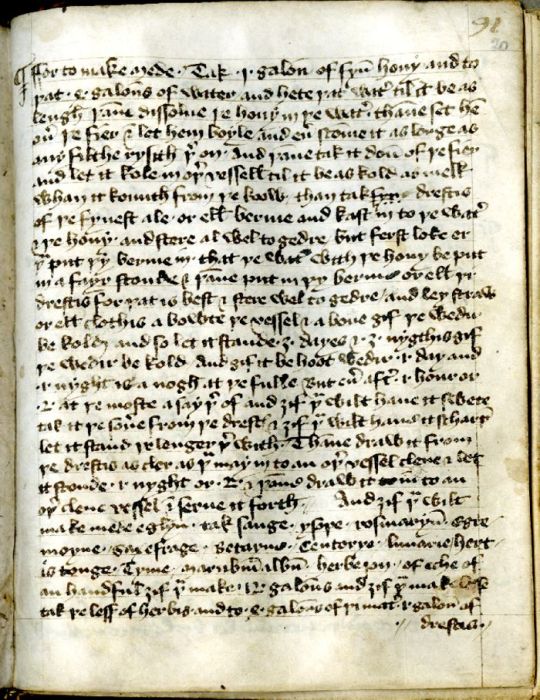 91
20
¶ ffor to make mede. Tak .i. galoun of fyn hony and to
þat .4. galouns of water and hete þat watir til it be as
lengh þanne dissolue þe hony in þe watir. thanne set hem
ouir þe fier & let hem boyle and euer scome it as longe as
any filthe rysith þer on. and þanne tak it doun of þe fier
and let it kole in oþer vessell til it be as kold as melk
whan it komith from þe koow. than tak drestis
of þe fynest ale or elles berme and kast in to þe water
& þe hony. and stere al wel to gedre but ferst loke er
þu put þy berme in. that þe water with þe hony be put
in a fayr stonde & þanne put in þy berme or elles þi
drestis for þat is best & stere wel to gedre/ and ley straw
or elles clothis a bowte þe vessel & a boue gif þe wedir
be kolde and so let it stande .3. dayes & .3. nygthis gif
þe wedir be kold And gif it be hoot wedir .i. day and
.1. nyght is a nogh at þe fulle But euer after .i. hour or
.2. at þe moste a say þer of and zif þu wilt haue it swete
tak it þe sonere from þe drestis & zif þu wilt haue it scharpe
let it stand þe lenger þer with. Thanne draw it from
þe drestis as cler as þu may in to an oþer vessel clene & let
it stonde .1. nyght or .2. & þanne draw it in to an
oþer clene vessel & serue it forth And zif þu wilt
make mede eglyn. tak sauge. ysope. rosmaryne. Egre-
moyne. saxefrage. betayne. Centorye. lunarie/ hert-
is tonge. Tyme. marubium album. herbe jon. of eche of
an handful zif þu make .12. galouns and zif þu mak lesse
tak þe less of herbis. and to .4. galouns of þi mater .i. galoun of
drestis.